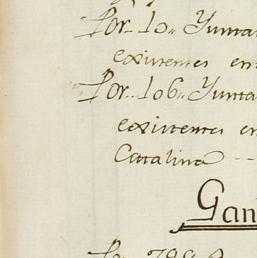 Por 10,, Yunta
existentes en
Por 106,, Yunta
existentes en
Catalina --
Gan